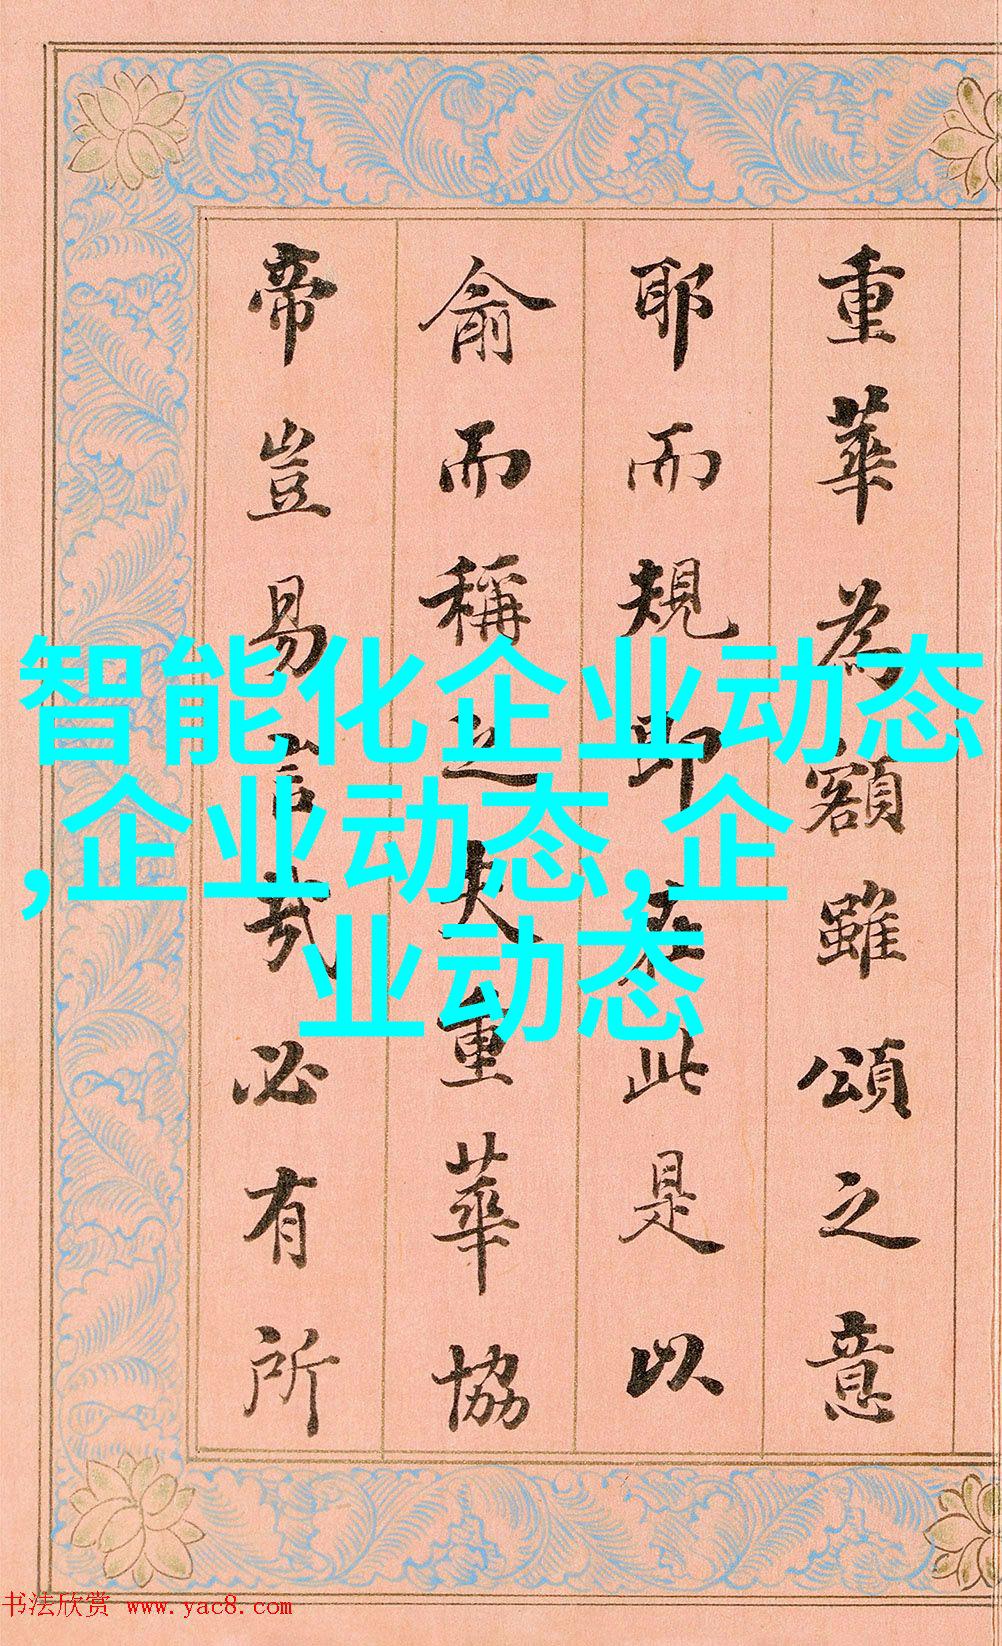 重華為額雖頌之意
耶而規即在此是以
俞而稱之夫重華協
帝豈易言哉必有所
智能化企业动态
,企业动态,企
业动态
书法欣赏 www.yac8.com